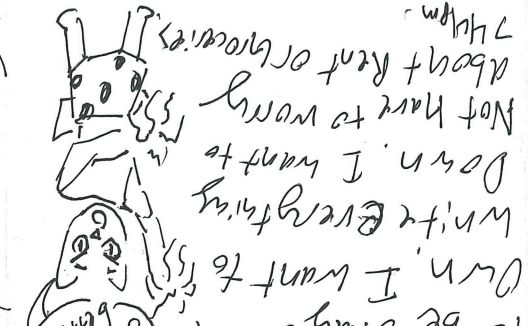 to be
Own, I want to
Write Everything
Down. I want to
Not Have to worry
about Rent or Groceries.
744pm.